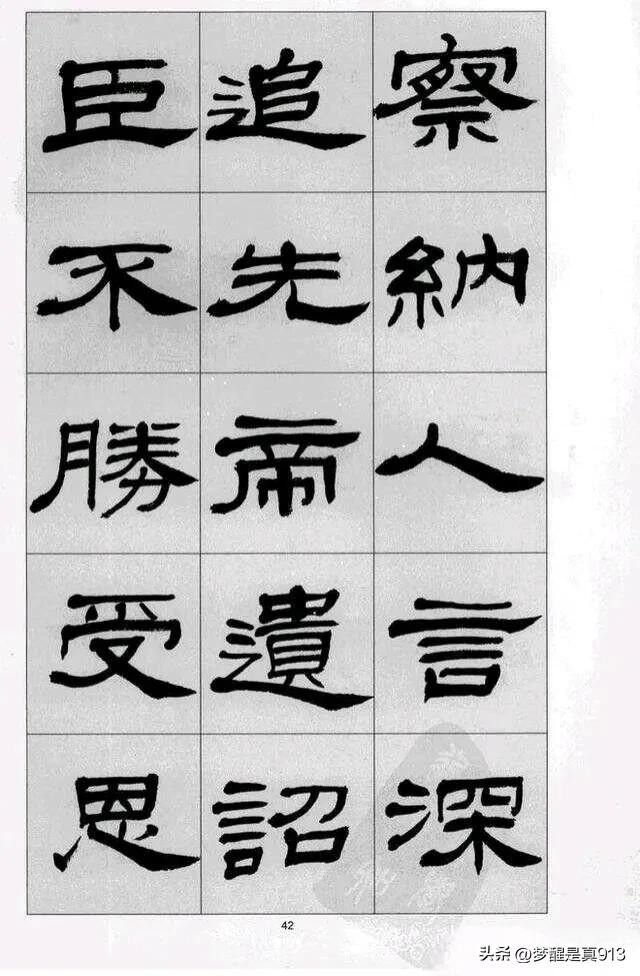 察納人言深
追先帝遺詔
臣不勝受恩
42
头条@梦醒是真913